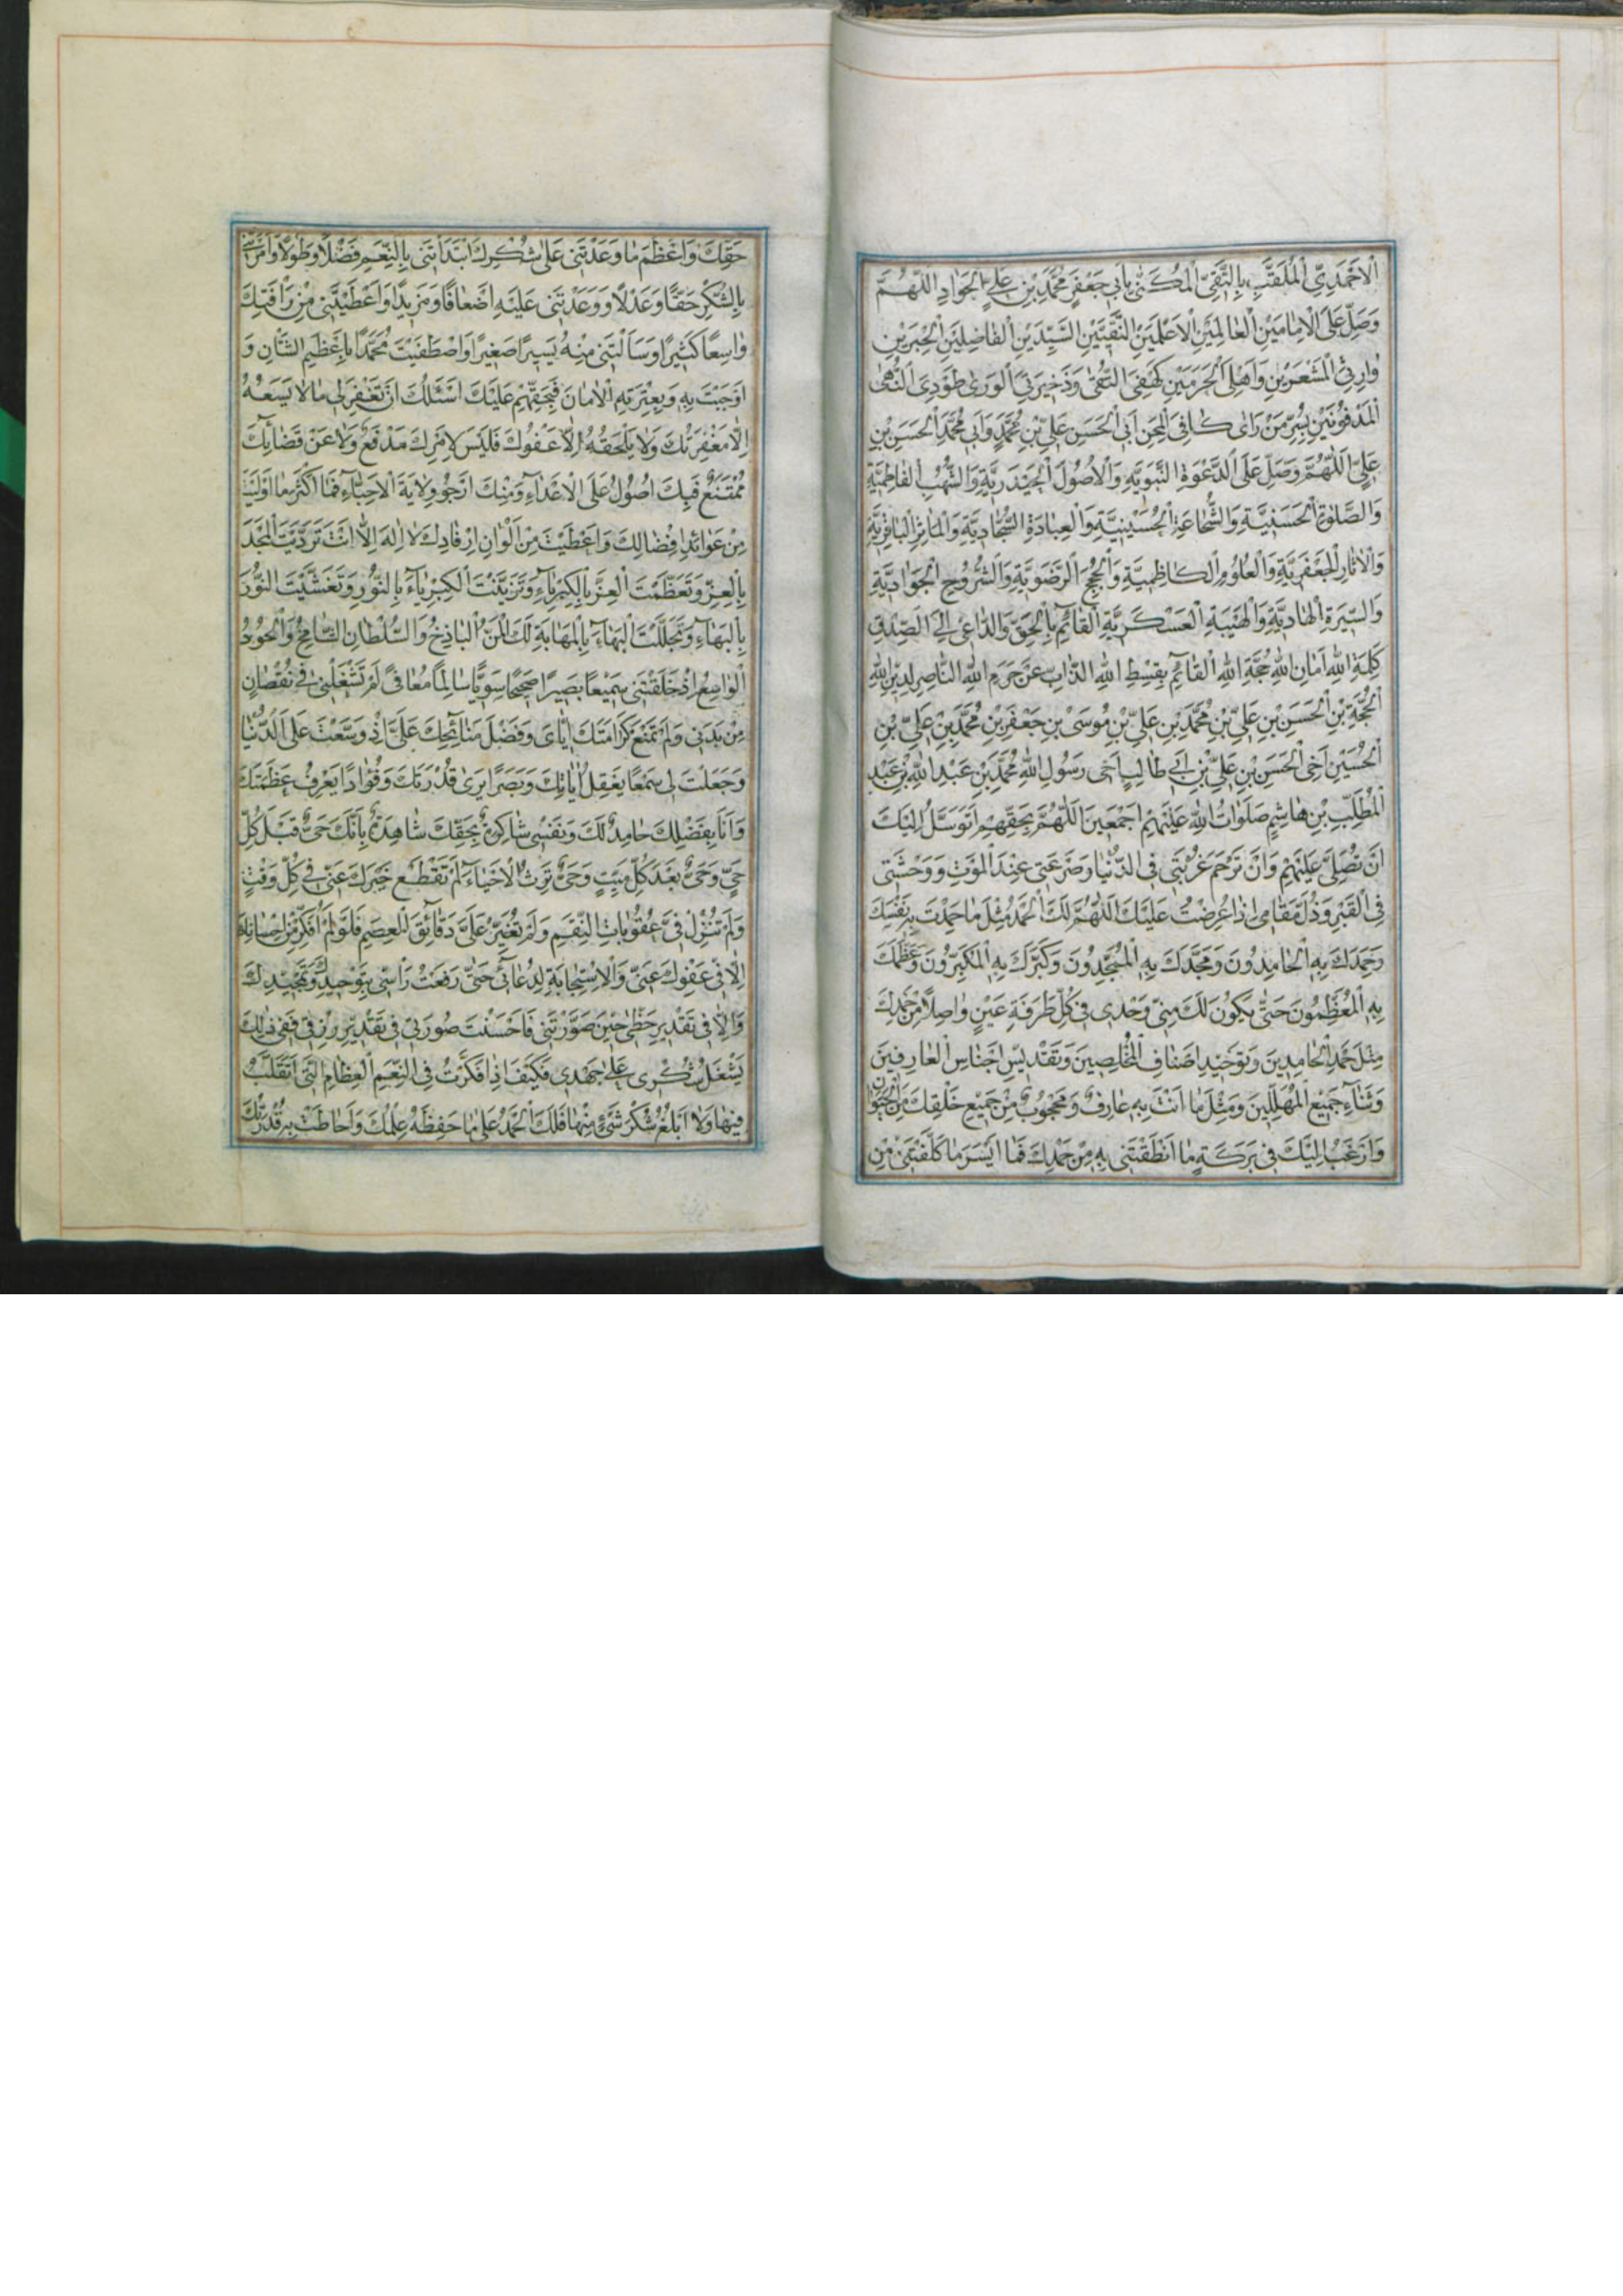 الْاَحْمَدِيِّ الْمُلَقَّبِ بِالتَّقِيِّ الْمُكَنّٰى بِاَبِي جَعْفَرٍ مُحَمَّدِ بْنِ عَلِيٍّ الْجَوَادِ اَللّٰهُمَّ
وَصَلِّ عَلَى الْاِمَامَيْنِ الْعَالِمَيْنِ الْاَعْلَمَيْنِ النَّقِيَّيْنِ السَّيِّدَيْنِ الْفَاضِلَيْنِ الْحِبْرَيْنِ
وَارِثَيِ الْمَشْعَرَيْنِ وَاَهْلَيِ الْحَرَمَيْنِ كَهْفَيِ التُّقٰى وَذَخِيرَتَيِ الْوَرٰى طَوْدَيِ النُّهٰى
الْمَدْفُونَيْنِ بِسُرَّ مَنْ رَاٰى كَافِيَ الْمِحَنِ اَبِي الْحَسَنِ عَلِيِّ بْنِ مُحَمَّدٍ وَاَبِي مُحَمَّدٍ الْحَسَنِ بْنِ
عَلِيٍّ اَللّٰهُمَّ وَصَلِّ عَلَى الدَّعْوَةِ النَّبَوِيَّةِ وَالْاُصُولِ الْحَيْدَرِيَّةِ وَالشُّهُبِ الْفَاطِمِيَّةِ
وَالصَّلٰوةِ الْحَسَنِيَّةِ وَالشُّجَاعَةِ الْحُسَيْنِيَّةِ وَالْعِبَادَةِ السَّجَّادِيَّةِ وَالْمَاٰثِرِ الْبَاقِرِيَّةِ
وَالْاٰثَارِ الْجَعْفَرِيَّةِ وَالْعُلُومِ الْكَاظِمِيَّةِ وَالْحُجَجِ الرَّضَوِيَّةِ وَالشُّرُوحِ الْجَوَادِيَّةِ
وَالسِّيرَةِ الْهَادِيَّةِ وَالْهَيْبَةِ الْعَسْكَرِيَّةِ الْقَائِمِ بِالْحَقِّ وَالدَّاعِي اِلَى الصِّدْقِ
كَلِمَةِ اللّٰهِ اَمَانِ اللّٰهِ حُجَّةِ اللّٰهِ الْقَائِمِ بِقِسْطِ اللّٰهِ الذَّابِّ عَنْ حَرَمِ اللّٰهِ النَّاصِرِ لِدِينِ اللّٰهِ
الْحُجَّةِ بْنِ الْحَسَنِ بْنِ عَلِيِّ بْنِ مُحَمَّدِ بْنِ عَلِيِّ بْنِ مُوسٰى بْنِ جَعْفَرِ بْنِ مُحَمَّدِ بْنِ عَلِيِّ بْنِ
الْحُسَيْنِ اَخِي الْحَسَنِ بْنِ عَلِيِّ بْنِ اَبِي طَالِبٍ اَخِي رَسُولِ اللّٰهِ مُحَمَّدِ بْنِ عَبْدِ اللّٰهِ بْنِ عَبْدِ
الْمُطَّلِبِ بْنِ هَاشِمٍ صَلَوَاتُ اللّٰهِ عَلَيْهِمْ اَجْمَعِينَ اَللّٰهُمَّ بِحَقِّهِمْ اَتَوَسَّلُ اِلَيْكَ
اَنْ تُصَلِّيَ عَلَيْهِمْ وَاَنْ تَرْحَمَ غُرْبَتِي فِي الدُّنْيَا وَصَرْعَتِي عِنْدَ الْمَوْتِ وَوَحْشَتِي
فِي الْقَبْرِ وَذُلَّ مَقَامِي اِذَا عُرِضْتُ عَلَيْكَ اَللّٰهُمَّ لَكَ الْحَمْدُ مِثْلَ مَا حَمِدْتَ بِهِ نَفْسَكَ
وَحَمِدَكَ بِهِ الْحَامِدُونَ وَمَجَّدَكَ بِهِ الْمُمَجِّدُونَ وَكَبَّرَكَ بِهِ الْمُكَبِّرُونَ وَعَظَّمَكَ
بِهِ الْمُعَظِّمُونَ حَتّٰى يَكُونَ لَكَ مِنِّي وَحْدِي فِي كُلِّ طَرْفَةِ عَيْنٍ وَاصِلًا مِنْ حَمْدِكَ
مِثْلَ حَمْدِ الْحَامِدِينَ وَتَوْحِيدِ اَصْنَافِ الْمُخْلِصِينَ وَتَقْدِيسِ اَجْنَاسِ الْعَارِفِينَ
وَثَنَاءِ جَمِيعِ الْمُهَلِّلِينَ وَمِثْلَ مَا اَنْتَ بِهِ عَارِفٌ وَمَحْجُوبٌ مِنْ جَمِيعِ خَلْقِكَ مِنَ الْحَيَوَانِ
وَاَرْغَبُ اِلَيْكَ فِي بَرَكَةِ مَا اَنْطَقْتَنِي بِهِ مِنْ حَمْدِكَ فَمَا اَيْسَرَ مَا كَلَّفْتَنِي مِنْ
حَقِّكَ وَاَعْظَمَ مَا وَعَدْتَنِي عَلٰى شُكْرِكَ ابْتَدَاْتَنِي بِالنِّعَمِ فَضْلًا وَطَوْلًا وَاَمَرْتَنِي
بِالشُّكْرِ حَقًّا وَعَدْلًا وَوَعَدْتَنِي عَلَيْهِ اَضْعَافًا وَمَزِيدًا وَاَعْطَيْتَنِي مِنْ رَاْفَتِكَ
وَاسِعًا كَثِيرًا وَسَاَلْتَنِي مِنْهُ يَسِيرًا صَغِيرًا وَاصْطَفَيْتَ مُحَمَّدًا بِاَعْظَمِ الشَّاْنِ وَ
اَوْجَبْتَ بِهِ وَبِعِتْرَتِهِ الْاَمَانَ فَبِحَقِّهِمْ عَلَيْكَ اَسْئَلُكَ اَنْ تَغْفِرَ لِي مَا لَا يَسَعُهُ
اِلَّا مَغْفِرَتُكَ وَلَا يَلْحَقُهُ اِلَّا عَفْوُكَ فَلَيْسَ لِاَمْرِكَ مَدْفَعٌ وَلَا عَنْ قَضَائِكَ
مُمْتَنَعٌ فَبِكَ اَصُولُ عَلَى الْاَعْدَاءِ وَمِنْكَ اَرْجُو وِلَايَةَ الْاَحِبَّاءِ فَمَا اَكْثَرَ مَا اَوْلَيْتَنِي
مِنْ عَوَائِدِ فَضَالِكَ وَاَعْطَيْتَ مِنْ اَلْوَانِ اِرْفَادِكَ لَا اِلٰهَ اِلَّا اَنْتَ تَرَدَّيْتَ الْمَجْدَ
بِالْعِزِّ وَتَعَظَّمْتَ الْعِزَّ بِالْكِبْرِيَاءِ وَتَزَيَّنْتَ الْكِبْرِيَاءَ بِالنُّورِ وَتَغَشَّيْتَ النُّورَ
بِالْبَهَاءِ وَتَجَلَّلْتَ الْبَهَاءَ بِالْمَهَابَةِ لَكَ الْمَنُّ الْبَاذِخُ وَالسُّلْطَانُ الشَّامِخُ وَالْجُودُ
الْوَاسِعُ اِذْ خَلَقْتَنِي سَمِيعًا بَصِيرًا صَحِيحًا سَوِيًّا سَالِمًا مُعَافًى لَمْ تَشْغَلْنِي فِي نُقْصَانٍ
مِنْ بَدَنِي وَلَمْ تَمْنَعْ كَرَامَتَكَ اِيَّايَ وَفَضْلَ مَنَائِحِكَ عَلَيَّ اِذْ وَسَّعْتَ عَلَيَّ الدُّنْيَا
وَجَعَلْتَ لِي سَمْعًا يَعْقِلُ اٰيَاتِكَ وَبَصَرًا يَرٰى قُدْرَتَكَ وَفُؤَادًا يَعْرِفُ عَظَمَتَكَ
وَاَنَا بِفَضْلِكَ حَامِدٌ لَكَ وَنَفْسِي شَاكِرَةٌ بِحَقِّكَ شَاهِدَةٌ بِاَنَّكَ حَيٌّ قَبْلَ كُلِّ
حَيٍّ وَحَيٌّ بَعْدَ كُلِّ مَيِّتٍ وَحَيٌّ تَرِثُ الْاَحْيَاءَ لَمْ تَقْطَعْ خَيْرَكَ عَنِّي فِي كُلِّ وَقْتٍ
وَلَمْ تُنْزِلْ فِيَّ عُقُوبَاتِ النِّقَمِ وَلَمْ تُغَيِّرْ عَلَيَّ دَقَائِقَ الْعِصَمِ فَلَوْ لَمْ اُفَكِّرْ مِنْ اِحْسَانِكَ
اِلَّا فِي عَفْوِكَ عَنِّي وَالْاِسْتِجَابَةِ لِدُعَائِي حَتّٰى رَفَعْتُ رَاْسِي بِتَوْحِيدِكَ وَتَمْجِيدِكَ
وَاِلَّا فِي تَقْدِيرِ حَظِّي حِينَ صَوَّرْتَنِي فَاَحْسَنْتَ صُورَتِي فِي تَقْدِيرِ رِزْقِي فَفِي ذٰلِكَ
يَشْغَلُ شُكْرِي عَلٰى جَهْدِي فَكَيْفَ اِذَا فَكَّرْتُ فِي النِّعَمِ الْعِظَامِ الَّتِي اَتَقَلَّبُ
فِيهَا وَلَا اَبْلُغُ شُكْرَ شَيْءٍ مِنْهَا فَلَكَ الْحَمْدُ عَلٰى مَا حَفِظَهُ عِلْمُكَ وَاَحَاطَتْ بِهِ قُدْرَتُكَ